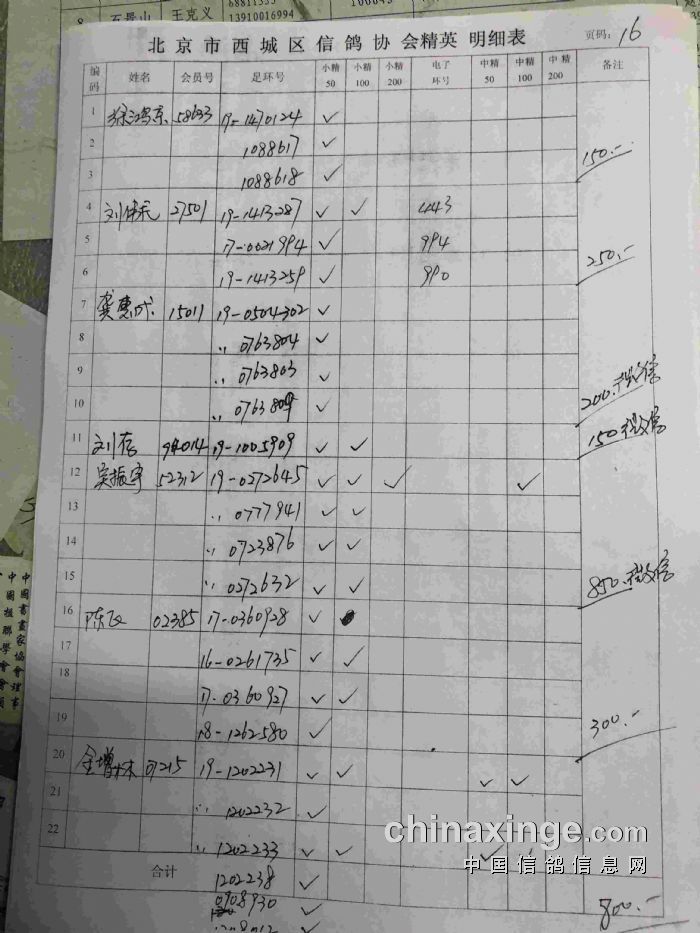 68811333
100043
8 石景山 王克义 13910016994
北京市西城区信鸽协会精英 明细表 页码: 16
编码 姓名 会员号 足环号 小精50 小精100 小精200 电子环号 中精50 中精100 中精200 备注
1 徐鸿京 58633 19-1470124 ✓
2 1088617 ✓ 150.-
3 1088618 ✓
4 刘伟民 27501 19-1413287 ✓ ✓ 443
5 17-0021994 ✓ 994 250.-
6 19-1413259 ✓ 990
7 龚惠成 15011 19-0504302 ✓
8 〃 0763804 ✓
9 〃 0763803 ✓
10 〃 ✓ 200.
11 刘存 19-1005909 ✓ ✓ 150
12 52312 19-0272645 ✓ ✓ ✓ ✓
13 〃 0777941 ✓ ✓
14 〃 0723876 ✓ ✓
15 〃 0272632 ✓ ✓ 850.
16 陈飞 02385 17-0360928 ✓
17 16-0261735 ✓ ✓
18 17-0360927 ✓ ✓
19 18-1262580 ✓ 300.-
20 金增林 07215 19-1202231 ✓ ✓ ✓ ✓
21 〃 1202232 ✓
22 〃 1202233 ✓ ✓ ✓
合计 1202238 ✓
0908930 ✓ 800.-
chinaxinge.com
中国信鸽信息网
中国书画家协会理事
中国楹联学会会员